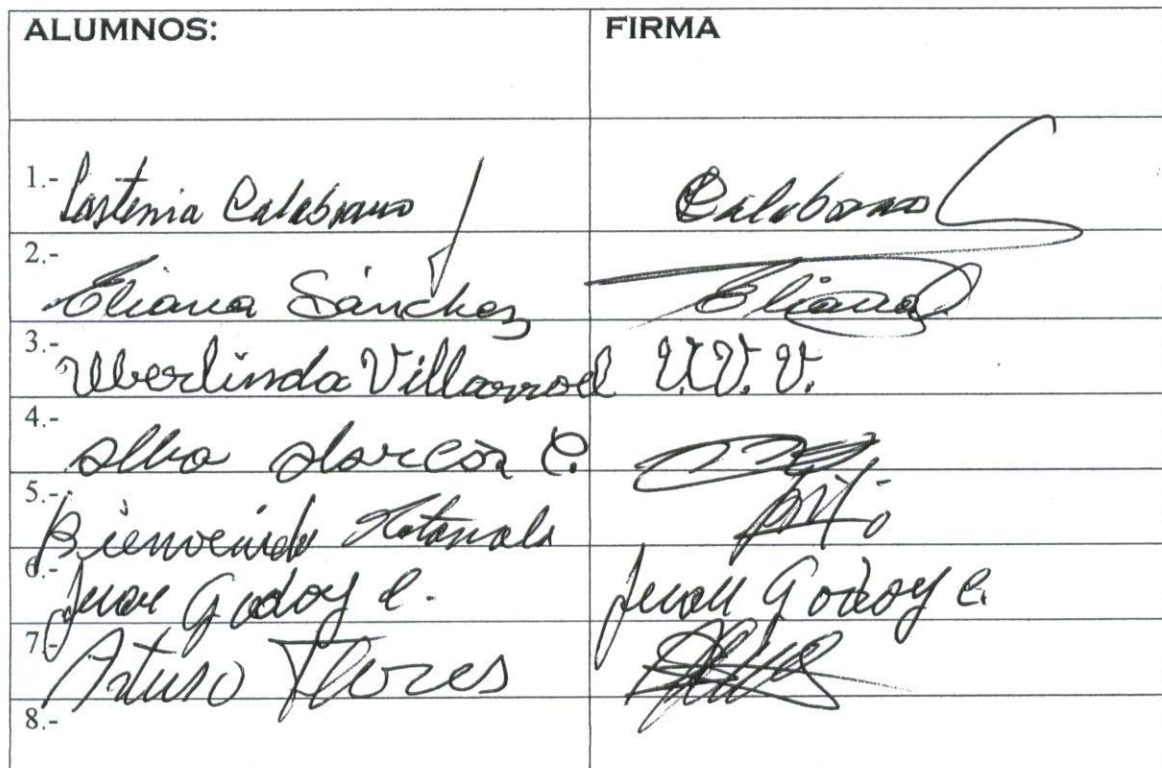 ALUMNOS: FIRMA
1.- Lastenia Calabrano Calabrano
2.- Eliana Sánchez Eliana S
3.- Uberlinda Villarroel U.V.V.
4.- Alba Alarcón C.
5.- Bienvenido
6.- Juan Godoy C. Juan Godoy C.
7.- Arturo Flores
8.-